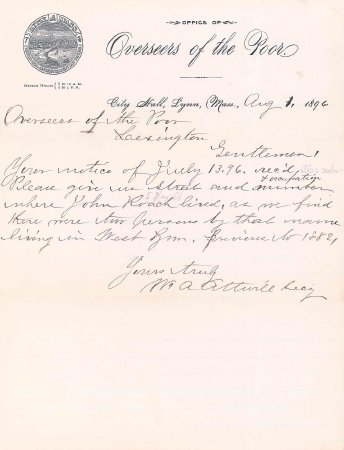 OFFICE OF
Overseers of the Poor
City Hall, Lynn, Mass. Aug 1, 1896
Overseers of the Poor
Lexington
Gentlemen:
Your notice of July 13. 96. rec'd,
+ occupation
Please give us street and number
where John Roach lived, as we find
there were two persons by that name
living in West Lynn, previous to 1882,
Yours truly
Wm A Attwill Secy